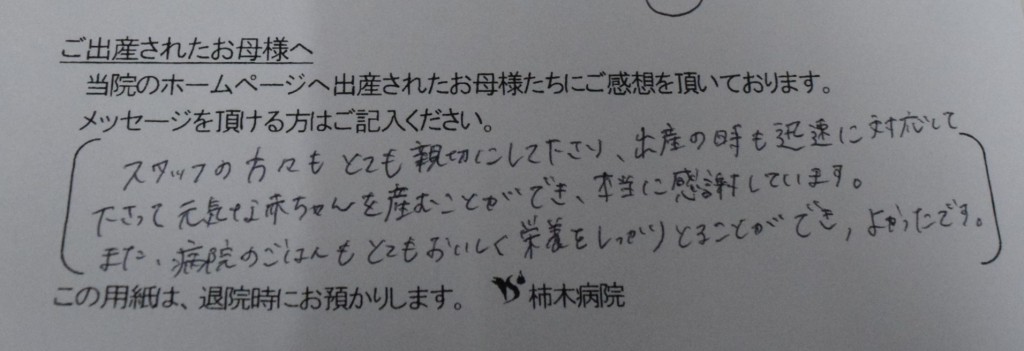 ご出産されたお母様へ
当院のホームページへ出産されたお母様たちにご感想を頂いております。
メッセージを頂ける方はご記入ください。
スタッフの方々もとても親切にして下さり、出産の時も迅速に対応して
下さって元気な赤ちゃんを産むことができ、本当に感謝しています。
また、病院のごはんもとてもおいしく栄養をしっかりとることができ、よかったです。
この用紙は、退院時にお預かりします。 柿木病院